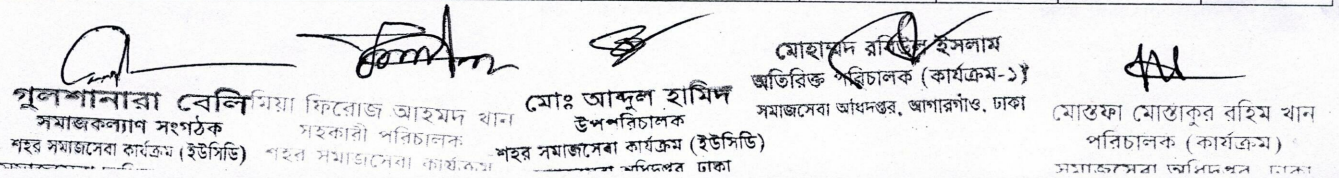 গুলশানারা বেলি
সমাজকল্যাণ সংগঠক
শহর সমাজসেবা কার্যক্রম (ইউসিডি)
মিয়া ফিরোজ আহমদ খান
সহকারী পরিচালক
শহর সমাজসেবা কার্যক্রম
মোঃ আব্দুল হামিদ
উপপরিচালক
শহর সমাজসেবা কার্যক্রম (ইউসিডি)
সমাজসেবা অধিদপ্তর ঢাকা
মোহাম্মদ রবিউল ইসলাম
অতিরিক্ত পরিচালক (কার্যক্রম-১)
সমাজসেবা অধিদপ্তর, আগারগাঁও, ঢাকা
মোস্তফা মোস্তাকুর রহিম খান
পরিচালক (কার্যক্রম)
সমাজসেবা অধিদপ্তর, ঢাকা